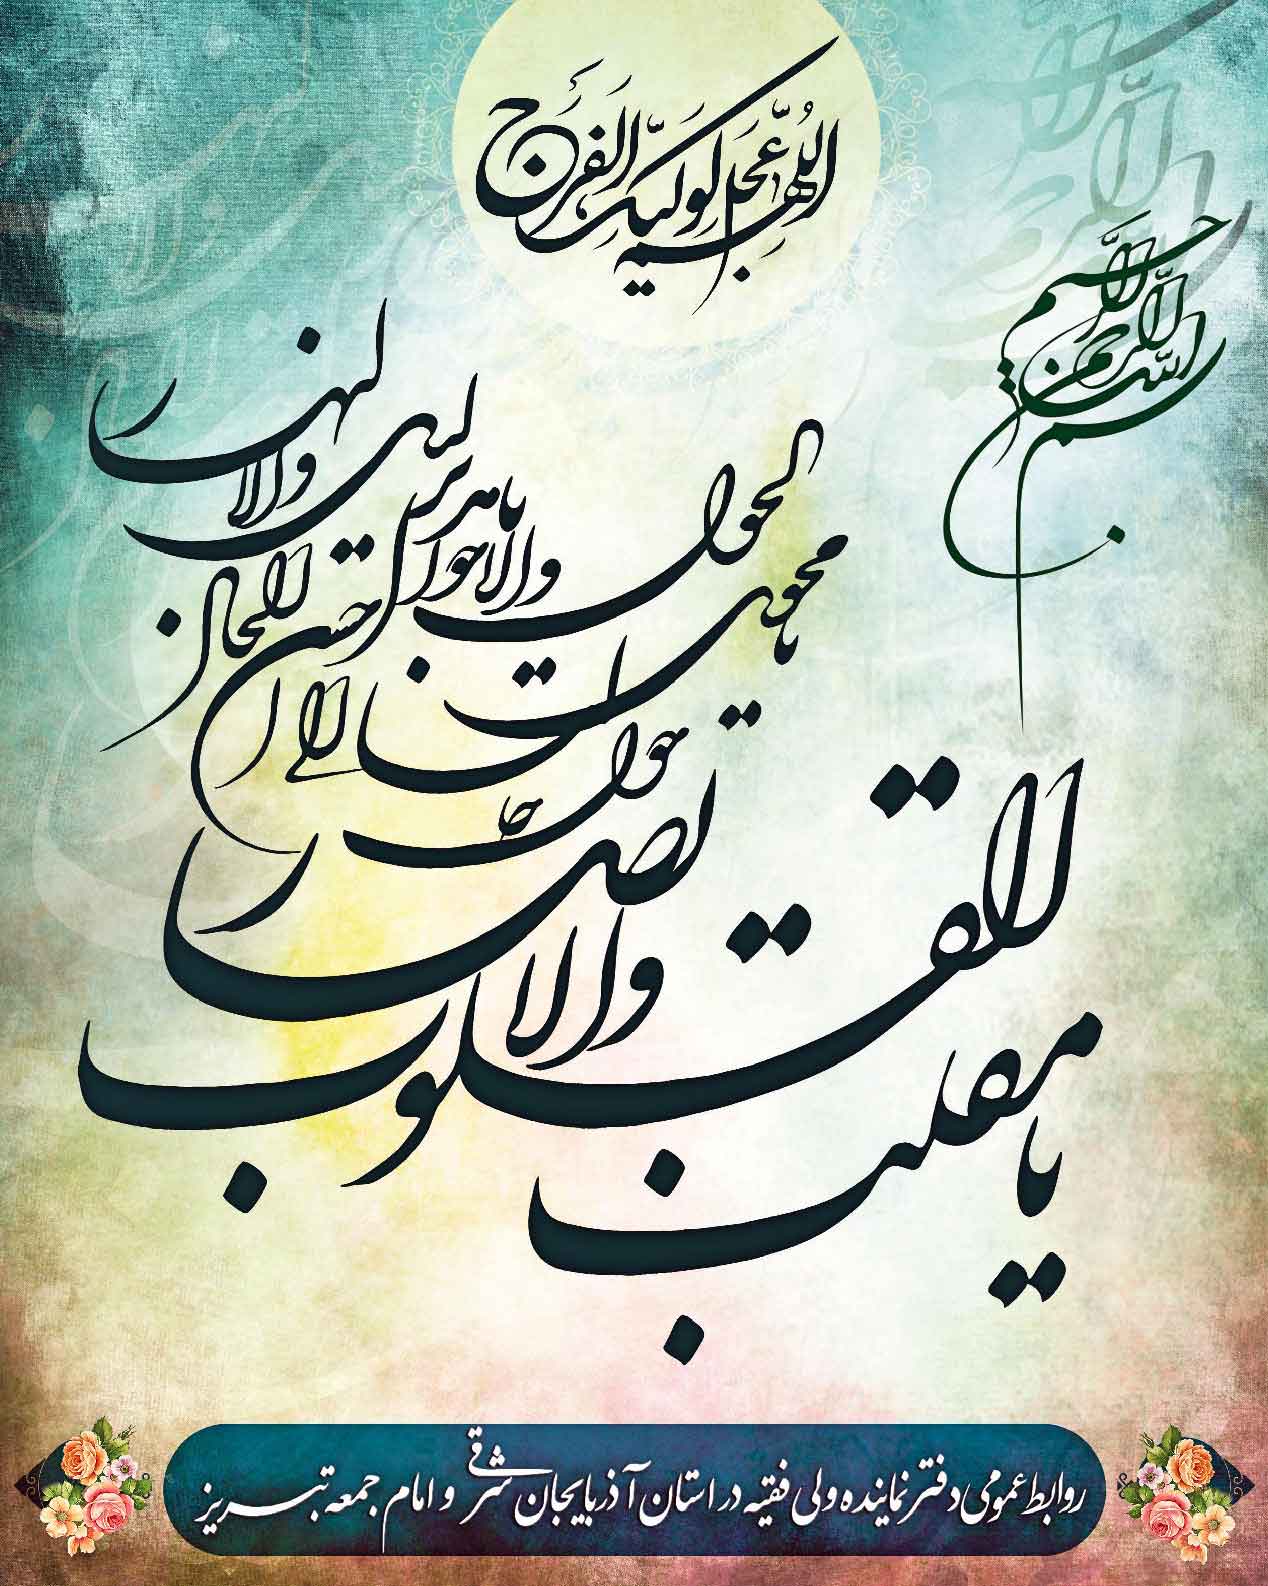 اللهم عجل لولیک الفرج
بسم الله الرحمن الرحیم
یا مقلب القلوب والابصار
یا مدبر اللیل والنهار
یا محول الحول والاحوال
حول حالنا الی احسن الحال
روابط عمومی دفتر نماینده ولی فقیه در استان آذربایجان شرقی و امام جمعه تبریز